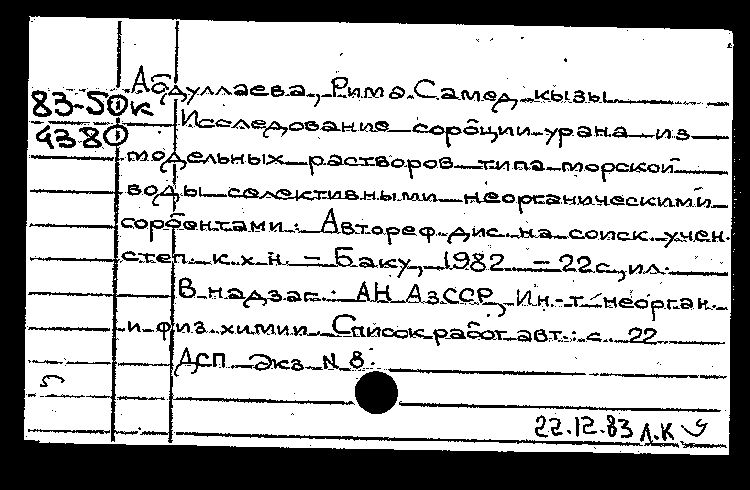 Абдуллаева, Рима Самед кызы
83-5 к
Исследование сорбции урана из
438
модельных растворов типа морской
воды селективными неорганическими
сорбентами: Автореф. дис. на соиск. учен.
степ. к. х. н. – Баку, 1982. – 22 с., ил.
В надзаг.: АН АзССР, Ин-т неорган.
и физ. химии. Список работ авт.: с. 22
ДСП Экз. N 8.
22.12.83 Л.К.